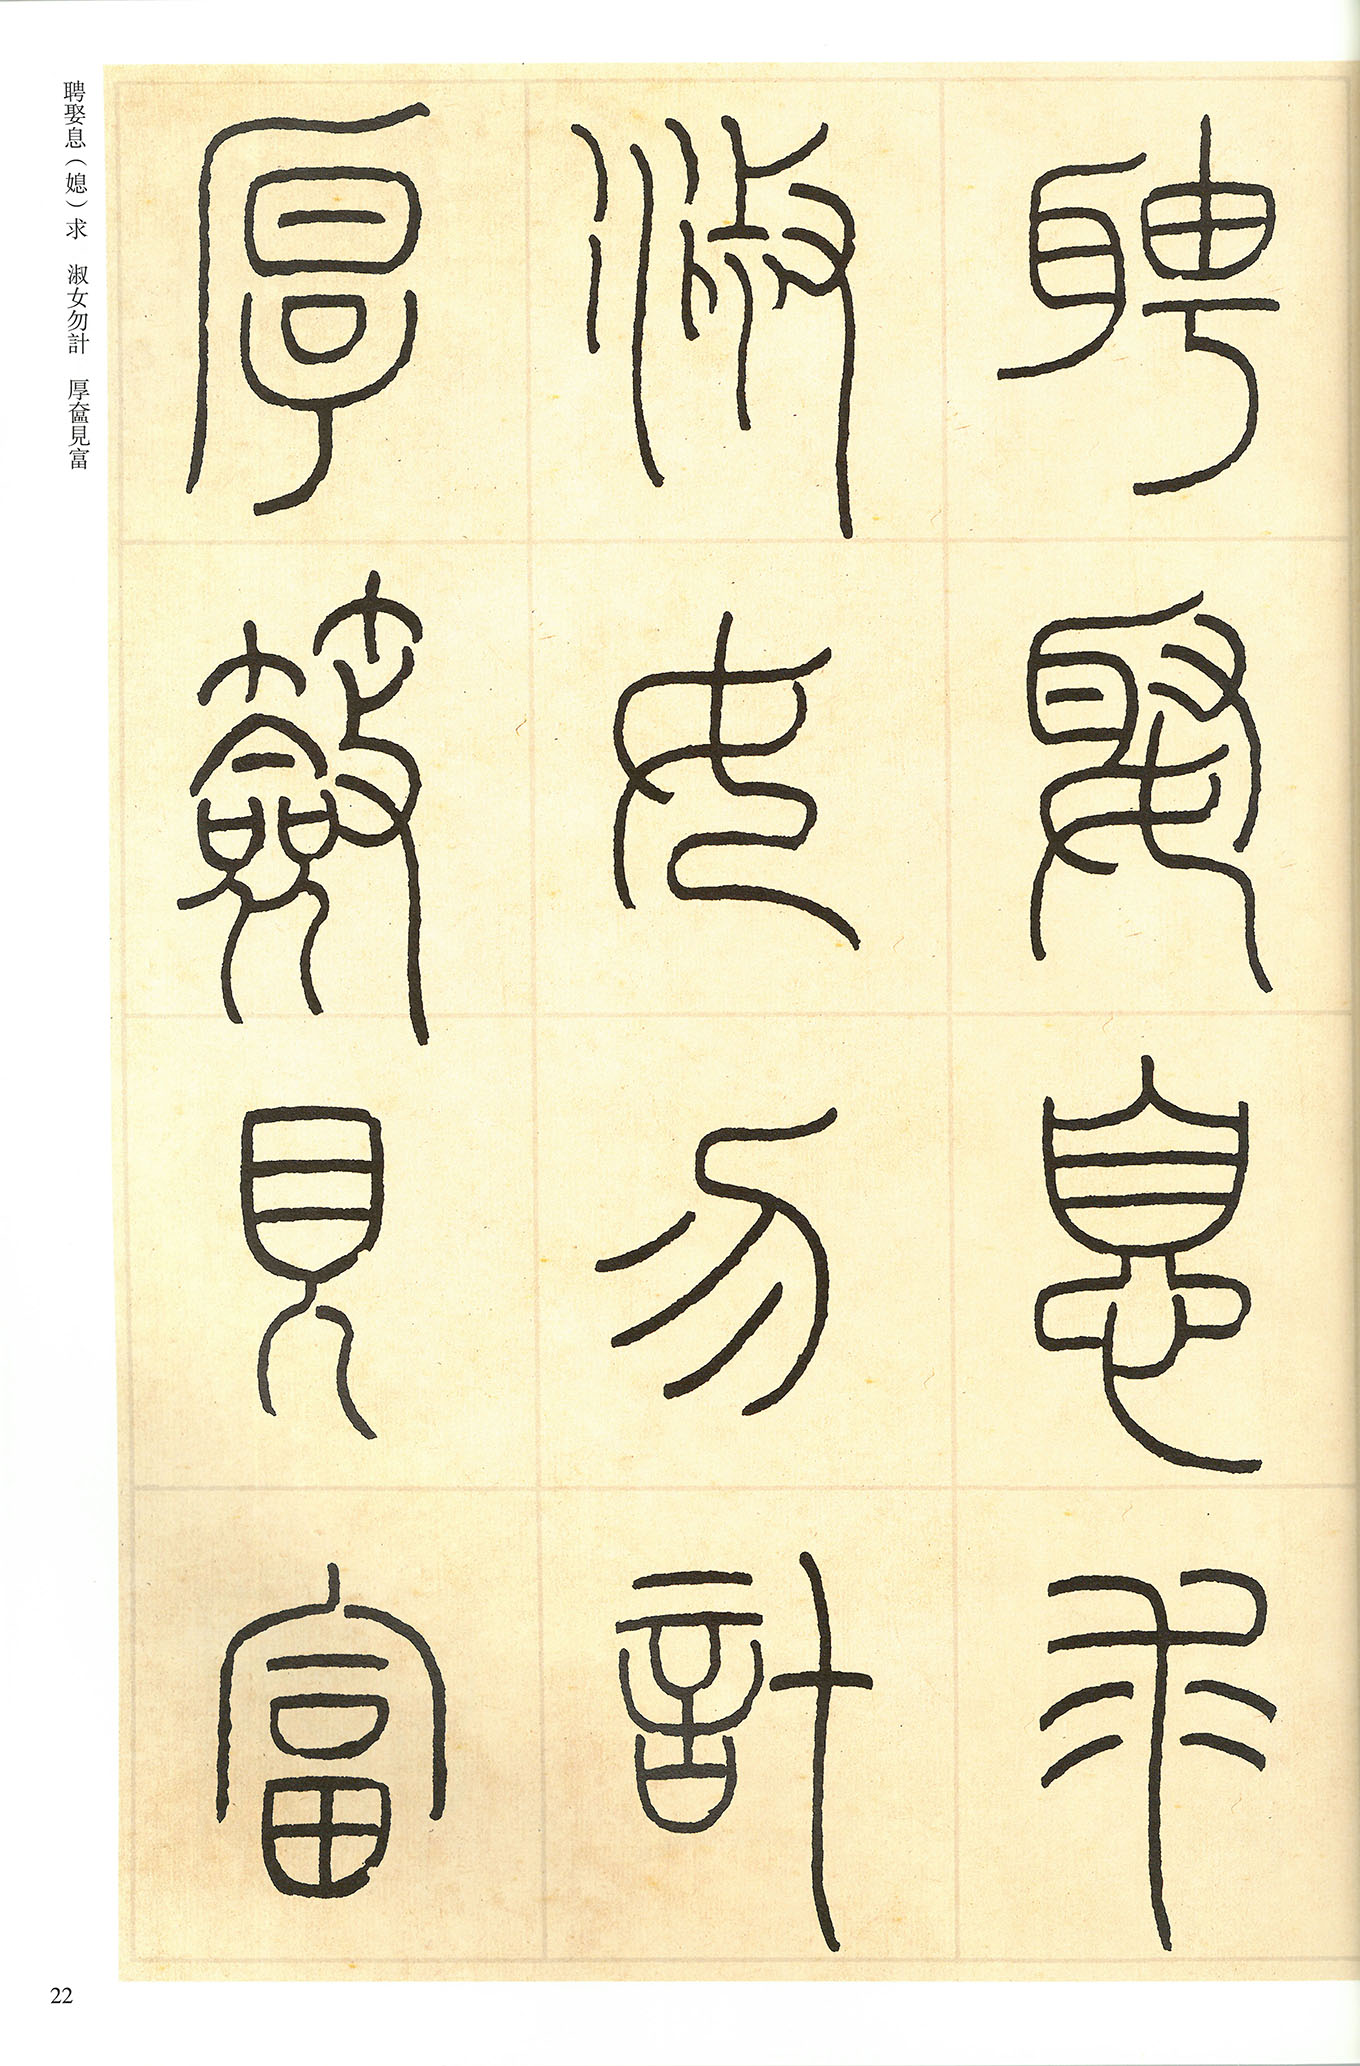 聘娶息求
淑女勿計
厚籢見富
聘娶息（媳）求　淑女勿計　厚奩見富
22